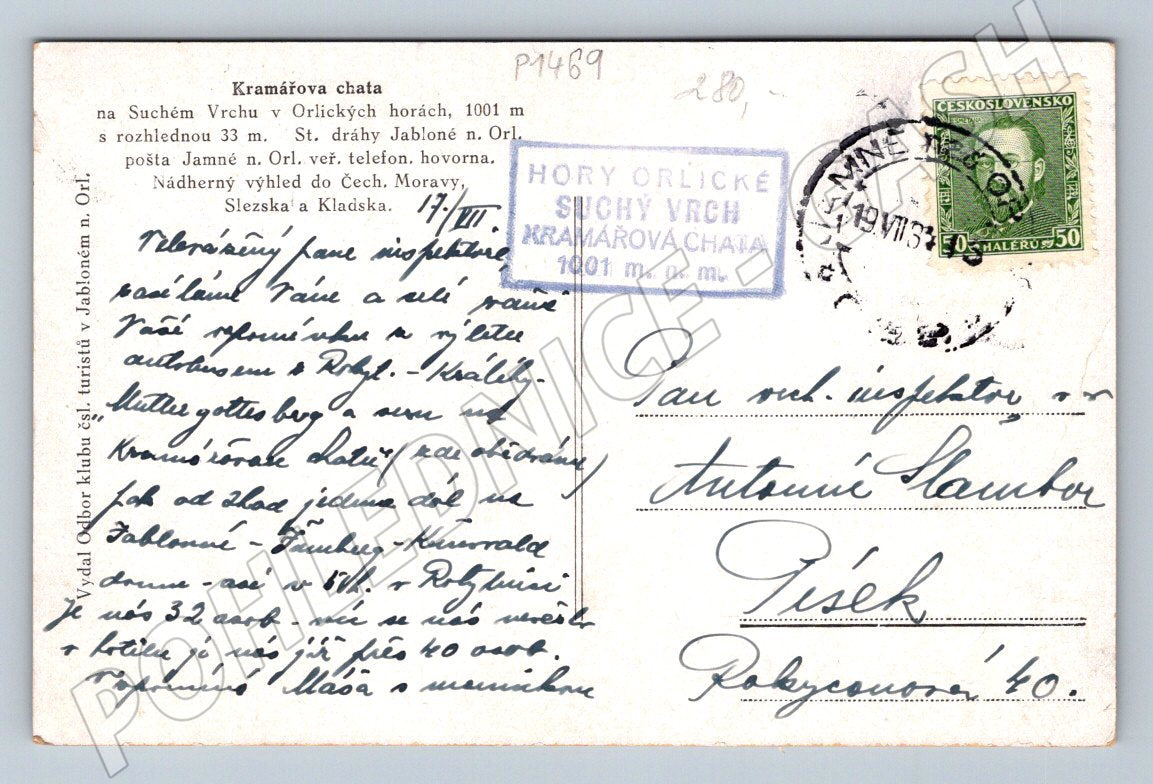 P1469
280,-
Kramářova chata
na Suchém Vrchu v Orlických horách, 1001 m
s rozhlednou 33 m. St. dráhy Jabloné n. Orl.
pošta Jamné n. Orl. veř. telefon. hovorna.
Nádherný výhled do Čech. Moravy,
Slezska a Kladska.
17./VII
Velevážený pane inspektore,
zasíláme Vám a celé
Vaší vzpomínku z výletu
autobusem z Rokyt. - Králíky -
"Muttergottesberg a sem na
Kramářovu chatu (zde obědváme)
pak od jedeme dál na
Jablonné - - Kunvald
domu - asi v v Rokytnici
Je nás 32 osob - víc se nás nevešlo
v hotelu je nás již přes 40 osob.
Máša s
Vydal Odbor klubu čsl. turistů v Jabloném n. Orl.
HORY ORLICKÉ
SUCHÝ VRCH
KRAMÁŘOVA CHATA
1001 m. n. m.
JAMNÉ NAD ORL.
19.VII.34
ČESKOSLOVENSKO
50 HALÉŘŮ 50
Pan vrch. inspektor v. v.
Antonín Slambor
Písek
Rokycanova 40.
POHLEDNICE - CASH